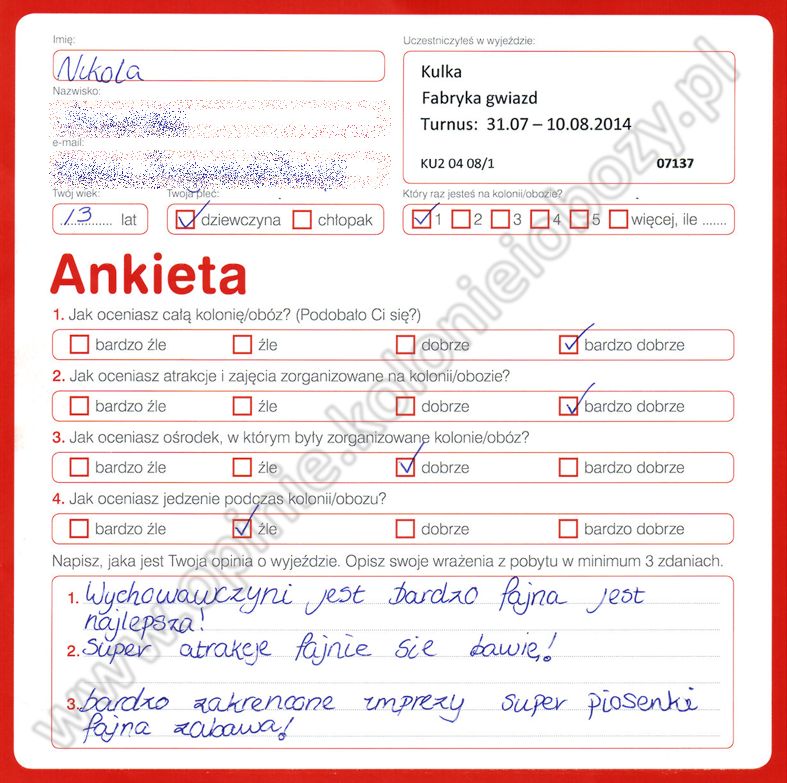 Imię:
Uczestniczyłeś w wyjeździe:
Nikola
Kulka
Nazwisko:
Fabryka gwiazd
Turnus: 31.07 – 10.08.2014
e-mail:
KU2 04 08/1 07137
Twój wiek: Twoja płeć: Który raz jesteś na kolonii/obozie?
13 lat dziewczyna chłopak 1 2 3 4 5 więcej, ile .......
Ankieta
1. Jak oceniasz całą kolonię/obóz? (Podobało Ci się?)
bardzo źle źle dobrze bardzo dobrze
2. Jak oceniasz atrakcje i zajęcia zorganizowane na kolonii/obozie?
bardzo źle źle dobrze bardzo dobrze
3. Jak oceniasz ośrodek, w którym były zorganizowane kolonie/obóz?
bardzo źle źle dobrze bardzo dobrze
4. Jak oceniasz jedzenie podczas kolonii/obozu?
bardzo źle źle dobrze bardzo dobrze
Napisz, jaka jest Twoja opinia o wyjeździe. Opisz swoje wrażenia z pobytu w minimum 3 zdaniach.
1. Wychowawczyni jest bardzo fajna jest
najlepsza!
2. super atrakcje fajnie sie bawię!
3. bardzo zakręcone imprezy super piosenki
fajna zabawa!
www.opinie.kolonieiobozy.pl